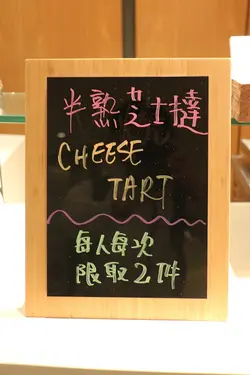 半熟芝士撻
CHEESE
TART
每人每次
限取2件